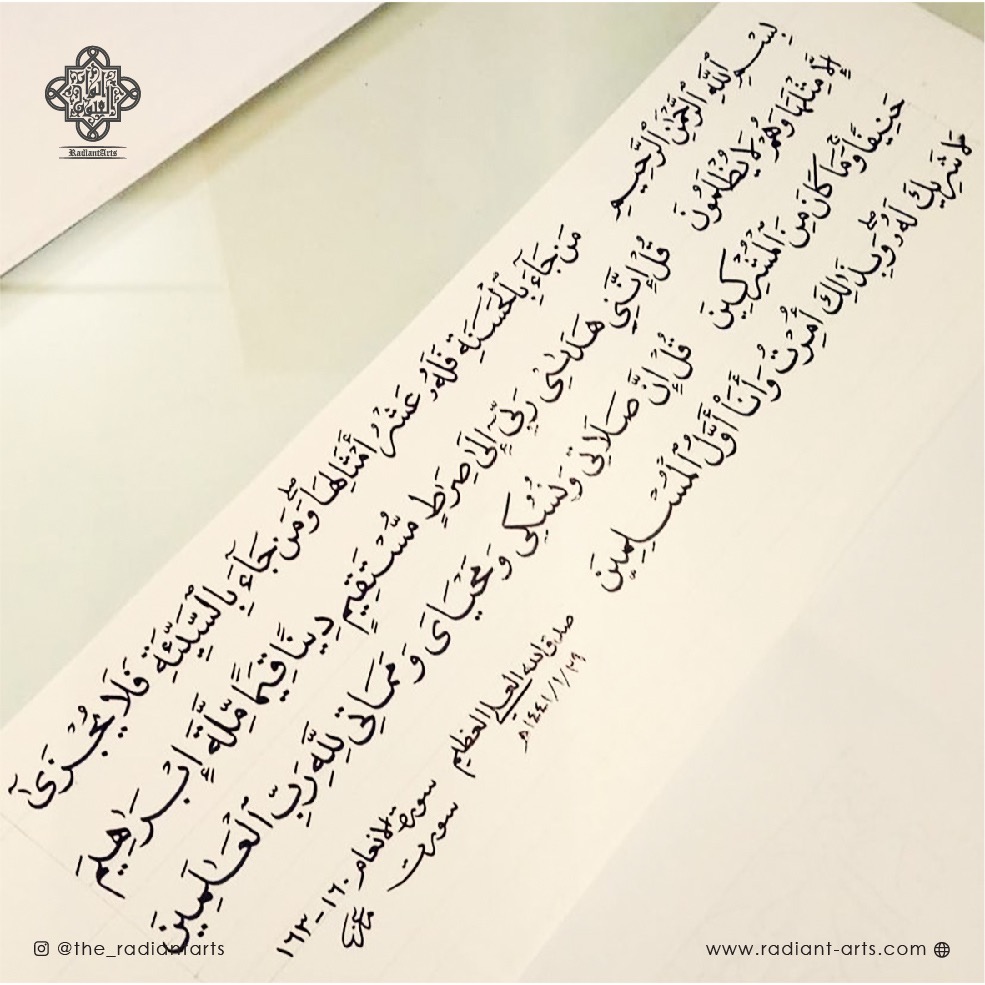 RadiantArts
بِسْمِ ٱللَّهِ ٱلرَّحْمَٰنِ ٱلرَّحِيمِ مَن جَآءَ بِٱلْحَسَنَةِ فَلَهُۥ عَشْرُ أَمْثَالِهَا ۖ وَمَن جَآءَ بِٱلسَّيِّئَةِ فَلَا يُجْزَىٰٓ
إِلَّا مِثْلَهَا وَهُمْ لَا يُظْلَمُونَ قُلْ إِنَّنِى هَدَىٰنِى رَبِّىٓ إِلَىٰ صِرَٰطٍ مُّسْتَقِيمٍ دِينًا قِيَمًا مِّلَّةَ إِبْرَاهِيمَ
حَنِيفًا ۚ وَمَا كَانَ مِنَ ٱلْمُشْرِكِينَ قُلْ إِنَّ صَلَاتِى وَنُسُكِى وَمَحْيَاىَ وَمَمَاتِى لِلَّهِ رَبِّ ٱلْعَالَمِينَ
لَا شَرِيكَ لَهُۥ ۖ وَبِذَٰلِكَ أُمِرْتُ وَأَنَا۠ أَوَّلُ ٱلْمُسْلِمِينَ
صدق الله العلي العظيم
سورة الانعام ١٦٠-١٦٣
@the_radiantarts
www.radiant-arts.com